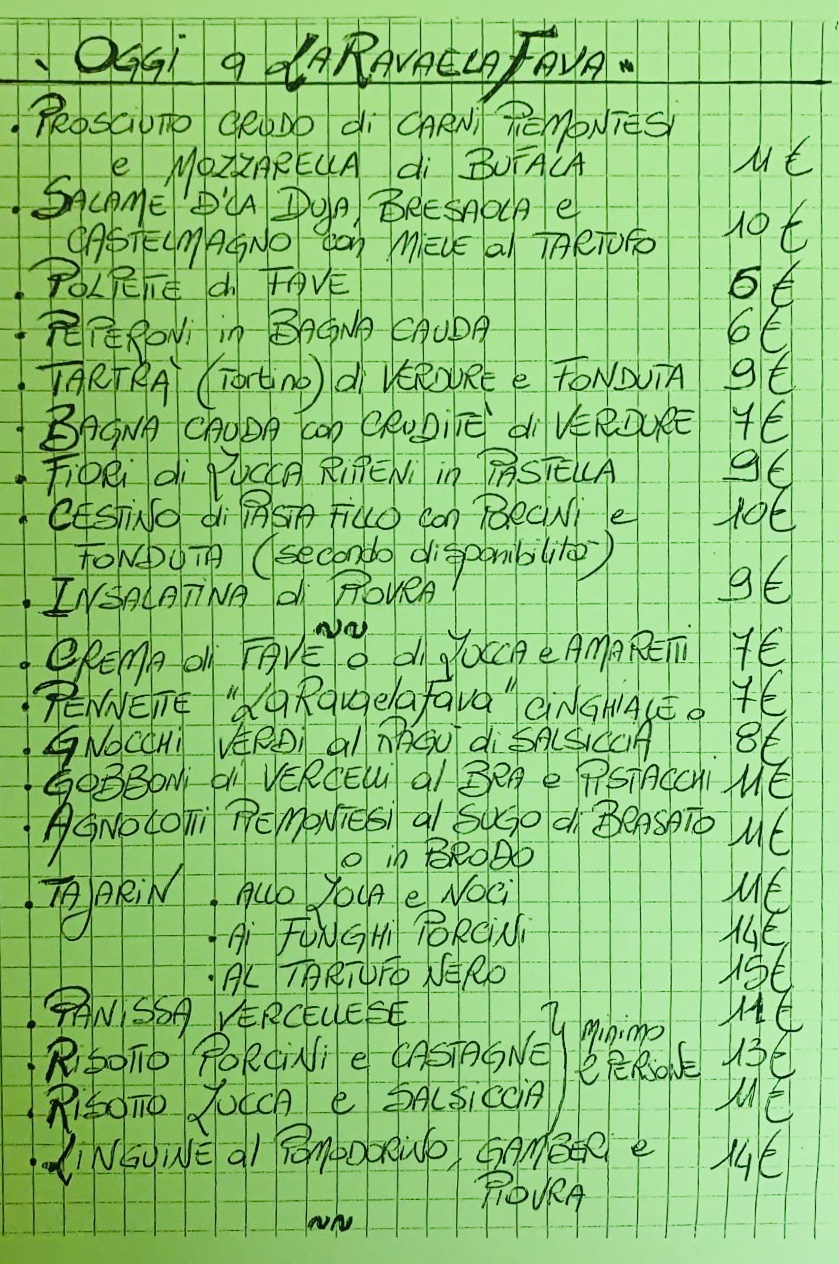 OGGI a LARAVAELAFAVA
. PROSCIUTTO CRUDO di CARNI PIEMONTESI
e MOZZARELLA di BUFALA 11 €
. SALAME D'LA DUJA, BRESAOLA e
CASTELMAGNO con MIELE al TARTUFO 10 €
. POLPETTE di FAVE 6 €
. PEPERONI in BAGNA CAUDA 6 €
. TARTRÀ (Tortino) di VERDURE e FONDUTA 9 €
. BAGNA CAUDA con CRUDITE' di VERDURE 7 €
. FIORI di ZUCCA RIPIENI in PASTELLA 9 €
. CESTINO di PASTA FILLO con PORCINI e 10 €
FONDUTA (secondo disponibilità)
. INSALATINA di PIOVRA 9 €
~~
. CREMA di FAVE o di ZUCCA e AMARETTI 7 €
. PENNETTE "LaRavaelafava" CINGHIALE o 7 €
. GNOCCHI VERDI al RAGU' di SALSICCIA 8 €
. GOBBONI di VERCELLI al BRA e PISTACCHI 11 €
. AGNOLOTTI PIEMONTESI al SUGO di BRASATO 11 €
o in BRODO
. TAJARIN . ALLO ZOLA e NOCI 11 €
. AI FUNGHI PORCINI 14 €
. AL TARTUFO NERO 15 €
. PANISSA VERCELLESE 11 €
. RISOTTO PORCINI e CASTAGNE MINIMO 2 PERSONE 13 €
. RISOTTO ZUCCA e SALSICCIA 11 €
. LINGUINE al POMODORINO, GAMBERI e 14 €
PIOVRA
~~